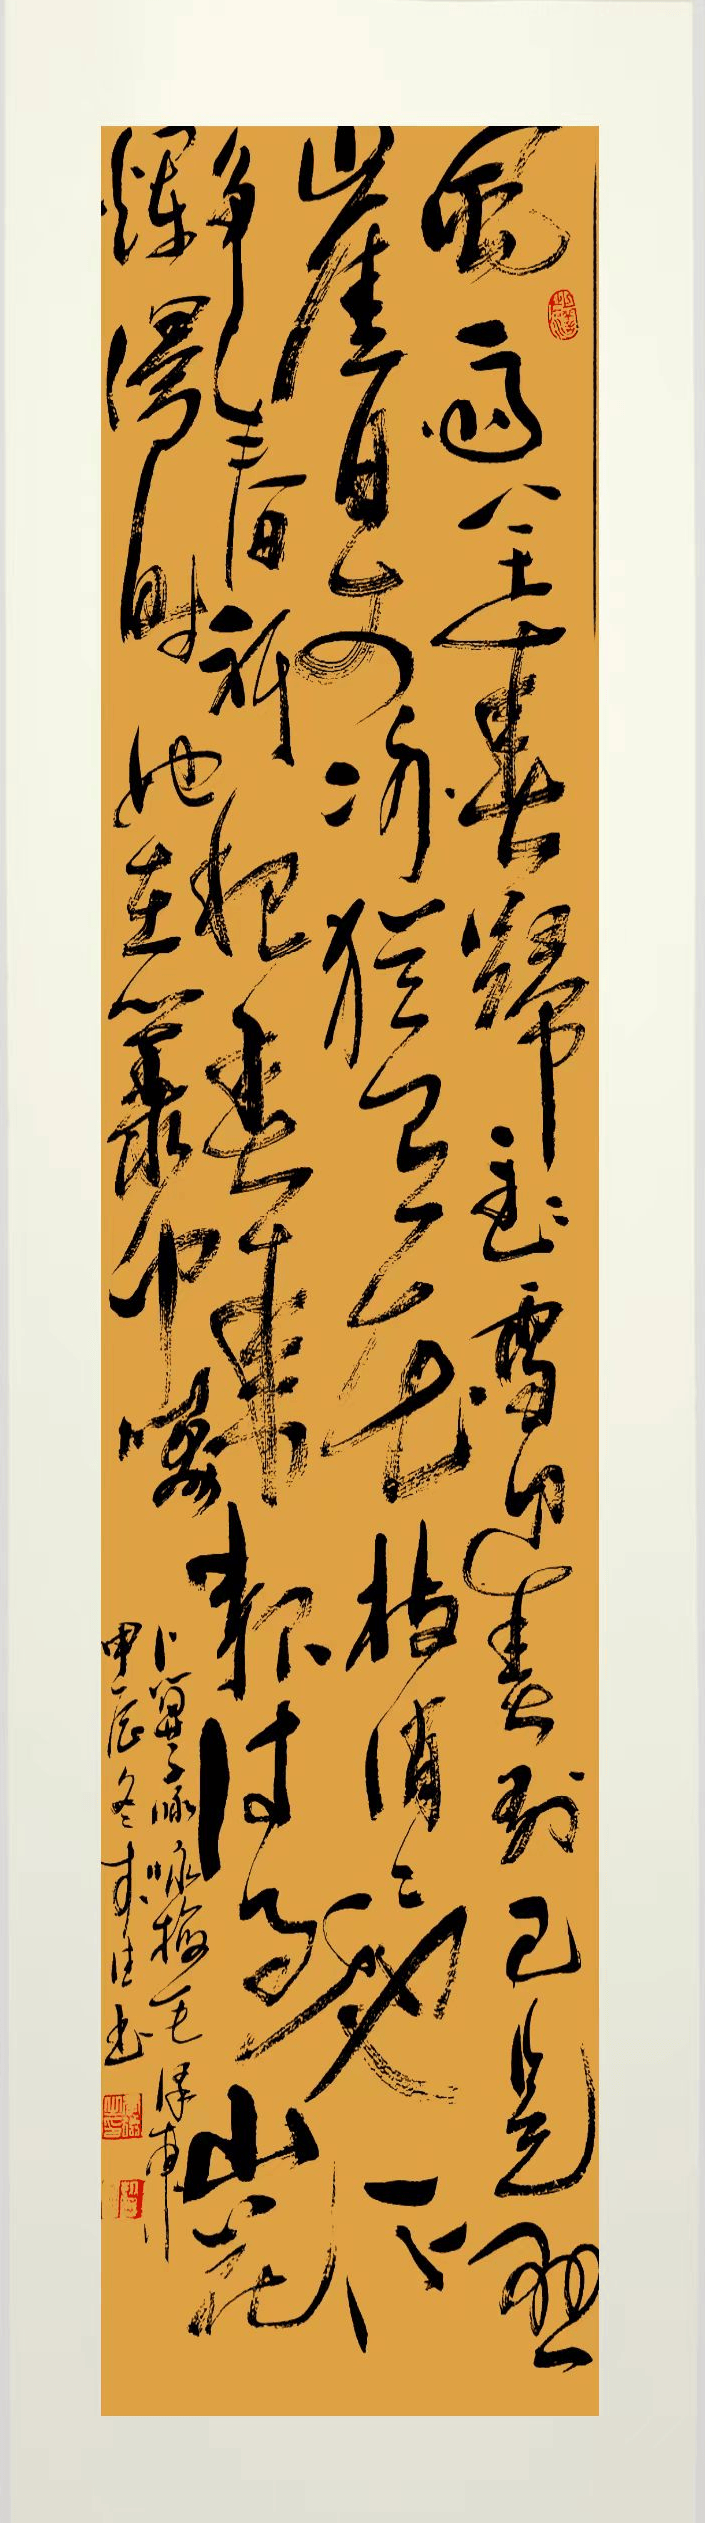 風雨送春歸飛雪迎春到已是懸
崖百丈冰猶有花枝俏〻也不
爭春只把春來報待到山花
爛漫時她在叢中笑
卜算子詠梅毛澤東
甲辰冬書